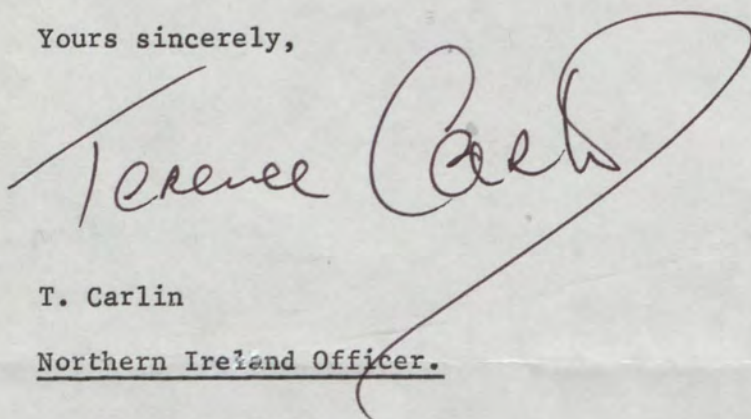 Yours sincerely,
Terence Carlin
T. Carlin
Northern Ireland Officer.